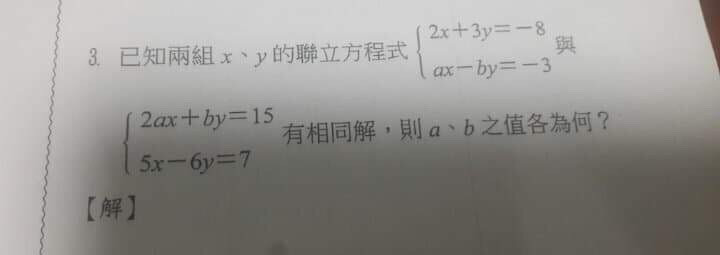 3. 已知兩組 x、y 的聯立方程式 { 2x+3y=-8
ax-by=-3 與
{ 2ax+by=15
5x-6y=7 有相同解，則 a、b 之值各為何？
【解】